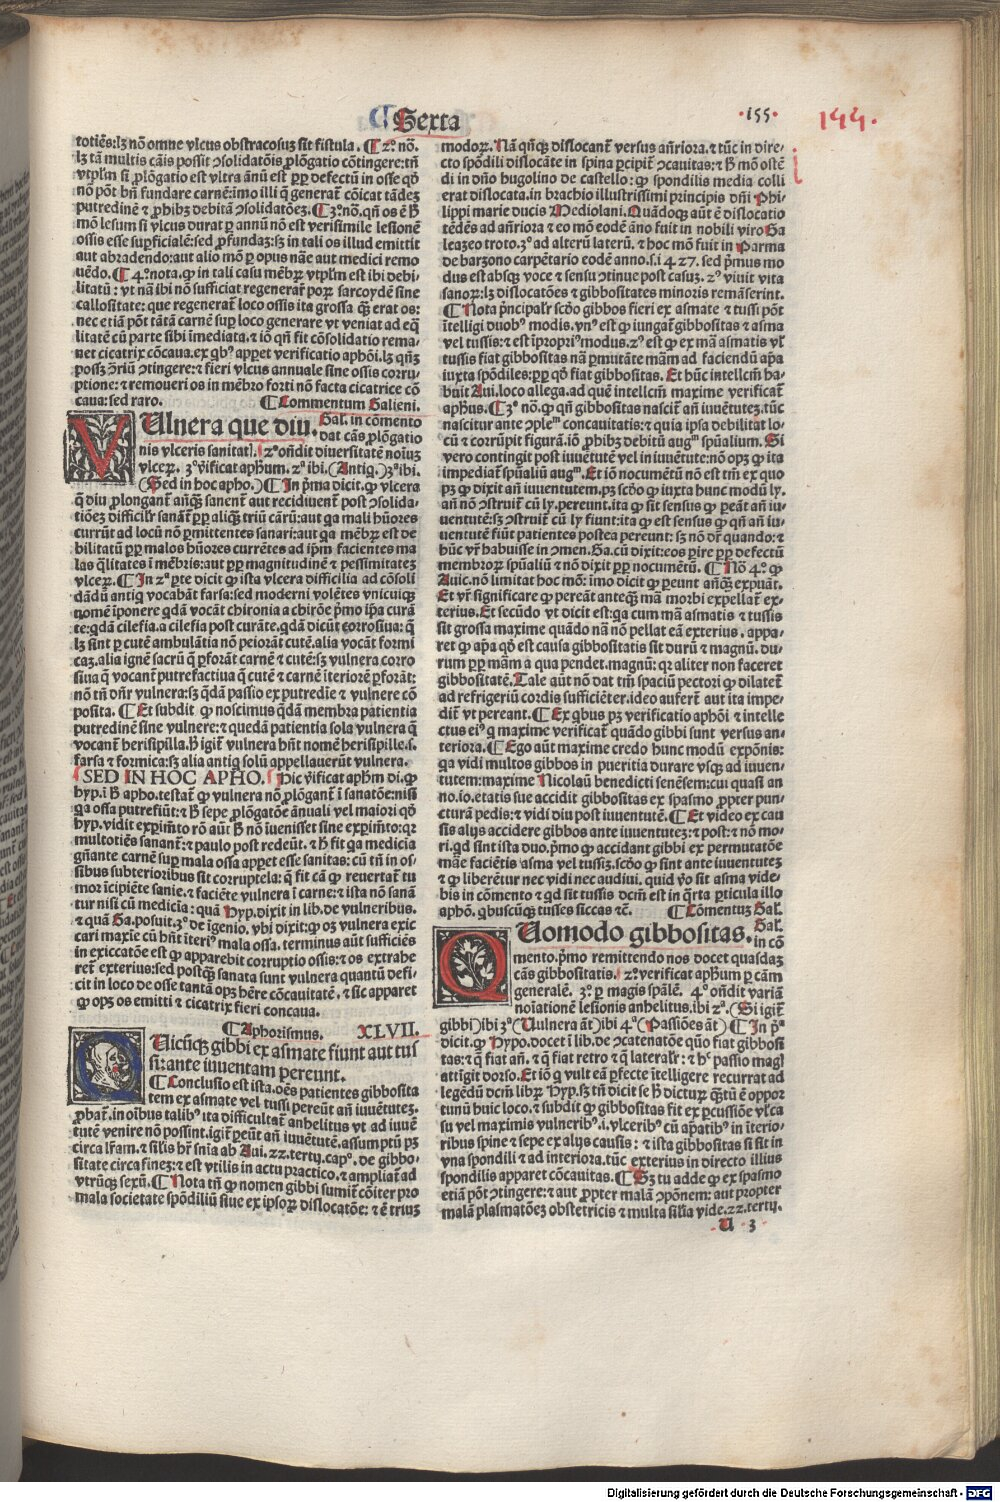 Sexta
.155.
144.
totiēs:lꝫ nō omne vlcus obstracosuꝫ sit fistula. ¶ 2º. nō.
lꝫ tā multis cāis possit ɔsolidatōis ꝓlōgatio cōtingere:tñ
vtplm si ꝓlōgatio est vltra ānū est ꝓpꝑ defectū in osse qđ
nō pōt bñ fundare carnē:imo illi q̄ generat̄ cōicat tādeꝫ
putredinē ⁊ ꝓhibꝫ debitā ɔsolidatōeꝫ. ¶ 3º.nō.qñ os ē ꝉ
mō lesum si vlcus durat ꝑ annū nō est verisimile lesionē
ossis esse suꝑficialē:sed ꝓfundaꝫ:sꝫ in tali os illud emittit
aut abradendo:aut alio mō ꝑ opus nāe aut medici remo
uēdo. ¶ 4º.nota.ꝙ in tali casu mēbꝝ vtplm est ibi debi-
litatū: vt nā ibi nō sufficiat regenerar̄ poꝝ sarcoydē sine
callositate: que regenerat̄ loco ossis ita grossa q̄ꝫ erat os:
nec etiā pōt tātā carnē suꝑ loco generare vt veniat ad eq̄
litatē cū parte sibi īmediata.⁊ iō qñ fit cōsolidatio rema-
net cicatrix cōcaua.ex qbꝰ appet verificatio aphōi.lꝫ qñqꝫ
possꝫ ɔriū ɔtingere:⁊ fieri vlcus annuale sine ossis corru-
ptione:⁊ remoueri os in mēbro forti nō facta cicatrice cō
caua:sed raro. ¶ Commentum Galieni.
VUlnera que diu. Gal. in cōmento
dat cās ꝓlōgatio
nis vlceris sanitatꝭ. 2º oñdit diuersitatē noīuꝫ
vlceꝝ. 3º v̄ificat aphꝫum. 2ª ibi.(Antiq.)3ª ibi.
(Sed in hoc apho.) ¶ In pma dicit.ꝙ vlcera
q̄ diu ꝓlongant̄ añq̄ꝫ sanent̄ aut recidiuent̄ post ɔsolida-
tiōeꝫ difficilꝛ sanāt̄ ꝓpꝑ aliq̄ꝫ triū cārū:aut qa mali hūores
currūt ad locū nō ꝑmittentes sanari:aut qa mēbꝝ est de
bilitatū ꝓpꝑ malos hūores currētes ad ipm facientes ma
las q̄litates ī mēbris:aut ꝓpꝑ magnitudinē ⁊ pessimitateꝫ
vlceꝝ. ¶ In 2ª ꝑte dicit ꝙ ista vlcera difficilia ad cōsoli
dādū antiq vocabāt farsa:sed moderni volētes vnicuiqꝫ
nomē īponere qdā vocāt chironia a chirōe pmo ipa curā
te:qdā cilefia.a cilefia post curāte.qdā dicūt corrosiua: q̄
lꝫ sint ꝑ cutē ambulātia nō peiorāt cutē.alia vocāt formi
caꝫ.alia ignē sacrū q̄ ꝑforāt carnē ⁊ cutē:sꝫ vulnera corro
siua q̄ vocant̄ putrefactiua q̄ cutē ⁊ carnē iteriorē ꝑforāt:
nō tñ dñr vulnera:sꝫ qdā passio ex putredīe ⁊ vulnere cō
posita. ¶ Et subdit ꝙ noscimus qdā membra patientia
putredinē sine vulnere:⁊ quedā patientia sola vulnera q̄
vocant̄ herisipilla.ꝉ igit̄ vulnera hñt nomē herisipille.s.
farsa ⁊ formica:sꝫ alia antiq solū appellauerūt vulnera.
SED IN HOC APHO. Hic v̄ificat aphꝫm di.ꝙ
hyp.i ꝉ apho.testat̄ ꝙ vulnera nō ꝓlōgant̄ i sanatōe:nisi
qa ossa putrefiūt:⁊ ꝉ sepe ꝓlōgatōe ānuali vel maiori qđ
hyp.vidit exꝑimēto rō aūt ꝉ nō iuenisset sine exꝑimēto:qꝛ
multotiēs sanant̄:⁊ paulo post redeūt.⁊ ꝉ fit qa medicīa
gñante carnē suꝑ mala ossa appet esse sanitas: cū tñ in os-
sibus subterioribus sit corruptela: q̄ fit cā ꝙ reuertat̄ tu
mor icipiēte sanie.⁊ faciēte vulnera i carne:⁊ ista nō sanā
tur nisi cū medicīa: quā Hyp.dixit in lib.de vulneribus.
⁊ quā Ga.posuit.3º de igenio. vbi dixit:ꝙ oꝫ vulnera exic
cari maxīe cū hñt iteriꝰ mala ossa. terminus aūt sufficiēs
in exiccatōe est ꝙ apparebit corruptio ossis:⁊ os extrahe
ret̄ exterius:sed postq̄ꝫ sanata sunt vulnera quantū defi-
cit in loco de osse tantā opꝫ hēre cōcauitatē.⁊ sic apparet
ꝙ opꝫ os emitti ⁊ cicatrix fieri concaua.
¶ Aphorismus. XLVII.
QUicūqꝫ gibbi ex asmate fiunt aut tus
si:ante iuuentam pereunt.
¶ Conclusio est ista.oēs patientes gibbosita
tem ex asmate vel tussi pereūt añ iuuētuteꝫ.
ꝓbat̄.in oibus talibꝰ ita difficultat̄ anhelitus vt ad iuuē
tutē venire nō possint.igit̄ ꝑeūt añ iuuētutē.assumptū pꝫ
circa lr̄am.⁊ silis hr̄ snīa ab Aui.22.tertij.capº. de gibbo-
sitate circa fineꝫ:⁊ est vtilis in actu practico.⁊ ampliat̄ ad
vtrūqꝫ sexū. ¶ Nota tñ ꝙ nomen gibbi sumit̄ cōiter pro
mala societate spōdiliū siue ex ipsoꝝ dislocatōe: ⁊ ē triuꝫ
modoꝝ. Nā qñqꝫ dislocant̄ versus añriora.⁊ tūc in dire-
cto spōdili dislocāte in spina ꝑcipit̄ ɔcauitas:⁊ ꝉ mō ostē
di in dño hugolino de castello: ꝙ spondilis media colli
erat dislocata.in brachio illustrissimi principis dñi Phi-
lippi marie ducis Mediolani.Quādoqꝫ aūt ē dislocatio
tēdēs ad añriora ⁊ eo mō eodē āno fuit in nobili viro Ga
leazeo troto.3º ad alterū laterū.⁊ hoc mō fuit in Parma
de barzono carpētario eodē anno.s.i427.sed pmus mo
dus est absqꝫ voce ⁊ sensu ɔtinue post casuꝫ. 2ꝰ viuit vita
sanoꝝ:lꝫ dislocatōes ⁊ gibbositates minoris remāserint.
¶ Nota pncipalꝛ scdo gibbos fieri ex asmate ⁊ tussi pōt
itelligi duobꝰ modis.vnꝰ est ꝙ iungat̄ gibbositas ⁊ asma
vel tussis:⁊ est ipropriꝰ modus.2ꝰ est ꝙ ex mā asmatis vl̄
tussis fiat gibbositas nā ꝑmutāte mām ad faciendū apa
iuxta spōdiles:ꝓpꝑ qđ fiat gibbositas. Et hūc intellcm ha-
buit Aui.loco allega.ad quē intellcm maxime verificat̄
aphꝫus. ¶ 3º nō.ꝙ qñ gibbositas nascit̄ añ iuuētuteꝫ.tūc
nascitur ante ɔplem̄ concauitatis:⁊ quia ipsa debilitat lo-
cū ⁊ corrūpit figurā.iō ꝓhibꝫ debitū augm̄ spūalium. Si
vero contingit post iuuētutē vel in iuuētute:nō opꝫ ꝙ ita
impediat̄ spūaliū augm̄. Et iō nocumētū nō est tm̄ ex quo
pꝫ ꝙ dixit añ iuuentutem.pꝫ scdo ꝙ iuxta hunc modū ly.
añ nō ɔstruit̄ cū ly.pereunt.ita ꝙ sit sensus ꝙ pereāt añ iu-
uentutē:sꝫ ɔstruit̄ cū ly fiunt:ita ꝙ est sensus ꝙ qñ añ iu-
uentutē fiūt patientes postea pereunt: sꝫ nō dr̄ quando:⁊
hūc vr̄ habuisse in ɔmen.Ga.cū dixit:eos ꝑire ꝓpꝑ defectū
membroꝝ spūaliū ⁊ nō dixit ꝓpꝑ nocumētū. ¶ Nō 4º. ꝙ
Auic.nō limitat hoc mō: īmo dicit ꝙ pereunt añq̄ꝫ expuāt.
Et vr̄ significare ꝙ pereāt anteq̄ꝫ mā morbi expellat̄ ex-
terius.Et secūdo vt dicit est:qa cum mā asmatis ⁊ tussis
sit grossa maxime quādo nā nō pellat eā exterius. appa-
ret ꝙ apa qđ est causa gibbositatis sit durū ⁊ magnū. du-
rum ꝓpꝑ mām a qua pendet.magnū: qꝛ aliter non faceret
gibbositatē.Tale aūt nō dat tm̄ spaciū pectori ꝙ dilatet̄
ad refrigeriū cordis sufficiēter.ideo aufert̄ aut ita impe-
dit̄ vt pereant. ¶ Ex qbus pꝫ verificatio aphōi ⁊ intelle
ctus eiꝰ q maxime verificat̄ quādo gibbi sunt versus an-
teriora. ¶ Ego aūt maxime credo hunc modū expōnis:
qa vidi multos gibbos in pueritia durare vsqꝫ ad iuuen-
tutem:maxime Nicolaū benedicti senēsem:cui quasi an
no.io.etatis sue accidit gibbositas ex spasmo ꝓpter pun-
cturā pedis:⁊ vidi diu post iuuentutē. ¶ Et video ex cau
sis alijs accidere gibbos ante iuuentuteꝫ:⁊ post:⁊ nō mo-
ri.qd sint ista duo.pmo ꝙ accidant gibbi ex permutatōe
māe faciētis asma vel tussiꝫ.scdo ꝙ sint ante iuuentuteꝫ
⁊ ꝙ liberētur nec vidi nec audiui. quid v̄o sit asma vide-
bis in cōmento ⁊ qđ sit tussis dcm̄ est in q̄rta ꝑticula illo
aphō. qbuscūqꝫ tusses siccas ⁊c. ¶ Cōmentuꝫ Gal.
QUomodo gibbositas. Gal.
in cō
mento.pmo remittendo nos docet quasdaꝫ
cās gibbositatis. 2º.verificat aphꝫum ꝑ cām
generalē. 3º. ꝑ magis spālē. 4º oñdit variā
noiationē lesionis anhelitus.ibi 2ª.(Si igit̄
gibbi)ibi 3ª(Vulnera āt)ibi 4ª(Passiōes āt) ¶ In pª
dicit.ꝙ Hypo.docet ī lib.de ɔcatenatōe quō fiat gibbosi
tas:⁊ q̄ fiat añ.⁊ q̄ fiat retro ⁊ q̄ lateralꝛ: ⁊ hꝰ passio magꝭ
attigit dorso.Et iō q vult eā ꝑfecte itelligere recurrat ad
legēdū dcm̄ libꝝ Hyp.sꝫ tñ dicit se ꝉ dicturꝰ q̄ꝫtū ē oppor
tunū huic loco.⁊ subdit ꝙ gibbositas fit ex ꝑcussiōe vl̄ca
su vel maximis vulneribꝰ.i.vlceribꝰ cū apatibꝰ in iterio-
ribus spine ⁊ sepe ex alijs causis : ⁊ ista gibbositas si sit in
vna spondili ⁊ ad interiora.tūc exterius in directo illius
spondilis apparet cōcauitas. ¶ Sꝫ tu adde ꝙ ex spasmo
etiā pōt ɔtingere:⁊ aut ꝓpter malā ɔpōnem: aut propter
malā plasmatōeꝫ obstetricis ⁊ multa silia vide.22.tertij.
U 3
Digitalisierung gefördert durch die Deutsche Forschungsgemeinschaft - DFG